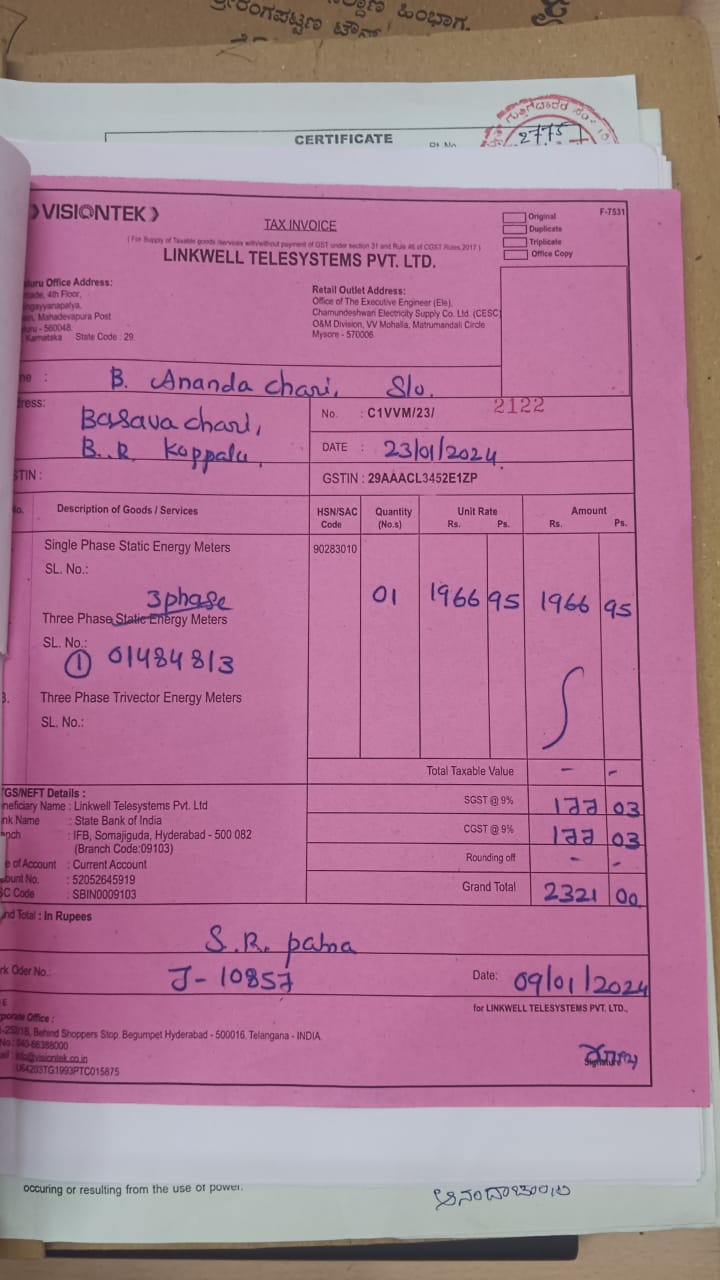 ರಂಗಪಟ್ಟಣ ಟೌನ್
ಹಿಂಭಾಗ.
CERTIFICATE
2775
VISIONTEK
TAX INVOICE
Original
Duplicate
Triplicate
Office Copy
F-7531
( For Supply of Taxable goods /services with/without payment of GST under section 31 and Rule 46 of CGST Rules,2017 )
LINKWELL TELESYSTEMS PVT. LTD.
uru Office Address:
ade, 4th Floor,
ngayyanapalya,
n, Mahadevapura Post
uru - 560048.
Karnataka State Code : 29.
Retail Outlet Address:
Office of The Executive Engineer (Ele),
Chamundeshwari Electricity Supply Co. Ltd. (CESC)
O&M Division, VV Mohalla, Matrumandali Circle
Mysore - 570006.
ne : B. Ananda chari, S/o.
ress: Basava chari,
B. R. Koppalu,
No. : C1VVM/23/ 2122
DATE : 23/01/2024
STIN :
GSTIN : 29AAACL3452E1ZP
o. Description of Goods / Services HSN/SAC Code Quantity (No.s) Unit Rate Rs. Ps. Amount Rs. Ps.
Single Phase Static Energy Meters 90283010
SL. No.:
3phase 01 1966 95 1966 95
Three Phase Static Energy Meters
SL. No.:
① 01484813
3. Three Phase Trivector Energy Meters
SL. No.:
Total Taxable Value - -
TGS/NEFT Details :
neficiary Name : Linkwell Telesystems Pvt. Ltd
nk Name : State Bank of India
anch : IFB, Somajiguda, Hyderabad - 500 082
(Branch Code:09103)
e of Account : Current Account
ount No. : 52052645919
SC Code : SBIN0009103
SGST @ 9% 177 03
CGST @ 9% 177 03
Rounding off - -
Grand Total 2321 00
nd Total : In Rupees
S. R. patna
rk Oder No.: J- 10857 Date: 09/01/2024
for LINKWELL TELESYSTEMS PVT. LTD.,
porate Office :
Behind Shoppers Stop. Begumpet Hyderabad - 500016, Telangana - INDIA.
No : 040-66388000
ail : info@visiontek.co.in
U64203TG1993PTC015875
Signature
occuring or resulting from the use of power.